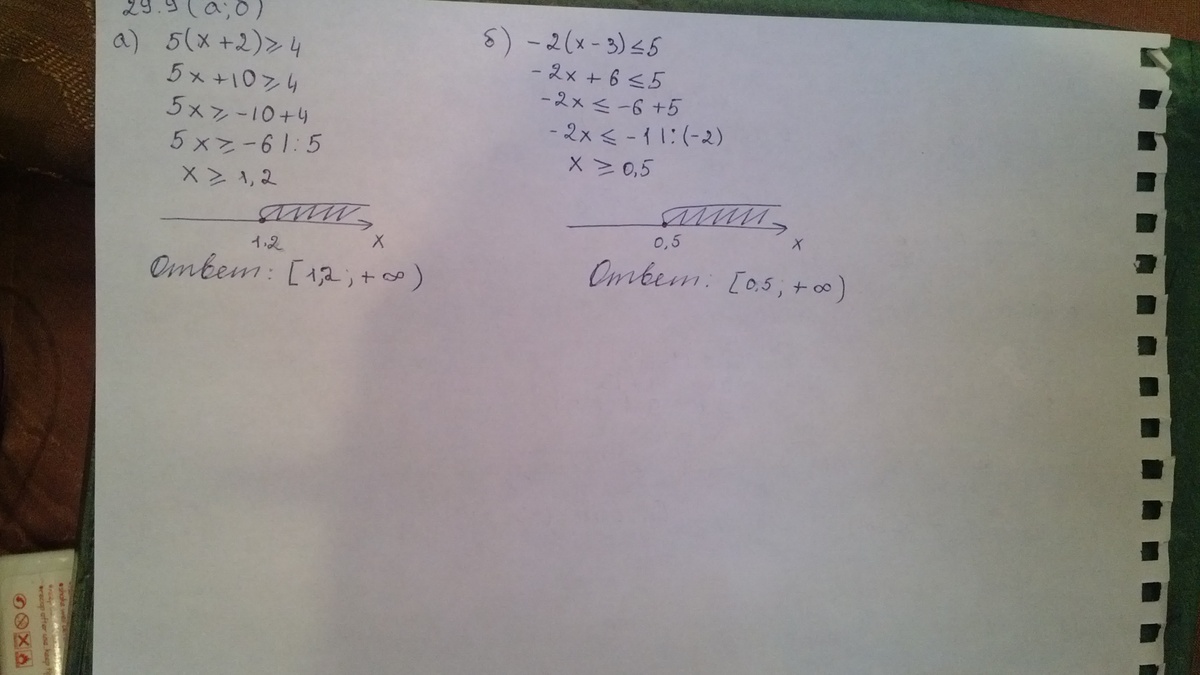 29.9 (а;б)
а) 5(x+2)≥4
5x+10≥4
5x≥-10+4
5x≥-6 |:5
x≥1,2
1,2 x
Ответ: [1,2;+∞)
б) -2(x-3)≤5
-2x+6≤5
-2x≤-6+5
-2x≤-1 |:(-2)
x≥0,5
0,5 x
Ответ: [0,5;+∞)